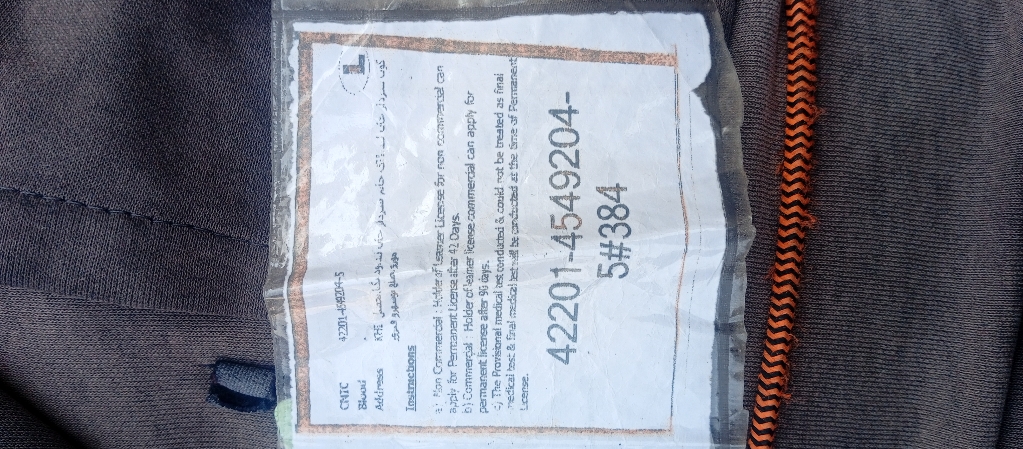 L
CNIC 42201-4549204-5
Blood -
Address KHI
Instructions
a) Non Commercial : Holder of Learner License for non commercial can
apply for Permanent License after 42 Days.
b) Commercial : Holder of learner license commercial can apply for
permanent license after 90 days.
c) The Provisional medical test conducted & could not be treated as final
medical test & final medical test will be conducted at the time of Permanent
License.
42201-4549204-
5#384